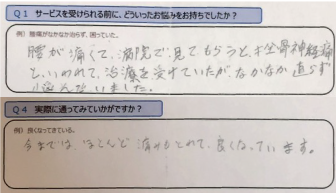 Q1 サービスを受けられる前に、どういったお悩みをお持ちでしたか？
例）腰痛がなかなか治らず、困っていた。
腰が痛くて、病院で見てもらうと、坐骨神経痛
といわれて、治療を受けていたがなかなか直らず
悩んでいました。
Q4 実際に通ってみていかがですか？
例）良くなってきている。
今までは ほとんど 痛みもとれて、良くなっています。